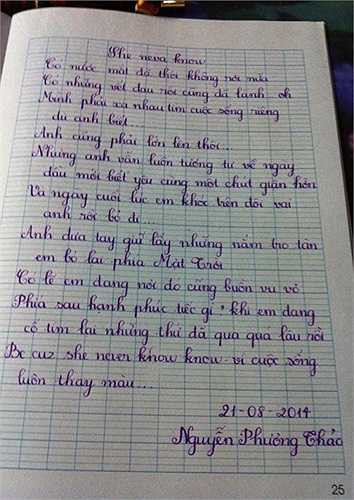 She neva know
Có nước mắt đã thôi không rơi nữa
Có những vết đau rồi cũng đã lành oh
Mình phải xa nhau tìm cuộc sống riêng
dù anh biết
Anh cũng phải lớn lên thôi...
Nhưng anh vẫn luôn tương tư về ngày
đầu mới biết yêu cùng một chút giận hờn
Và ngày cuối lúc em khóc trên đôi vai
anh rồi bỏ đi...
Anh đưa tay giữ lấy những nắm tro tàn
em bỏ lại phía Mặt Trời
Có lẽ em đang nơi đó cùng buồn vu vơ
Phía sau hạnh phúc tiếc gì? khi em đang
cố tìm lại những thứ đã qua quá lâu rồi
Be cuz she never know know vì cuộc sống
luôn thay màu...
21-08-2014
Nguyễn Phương Thảo
25